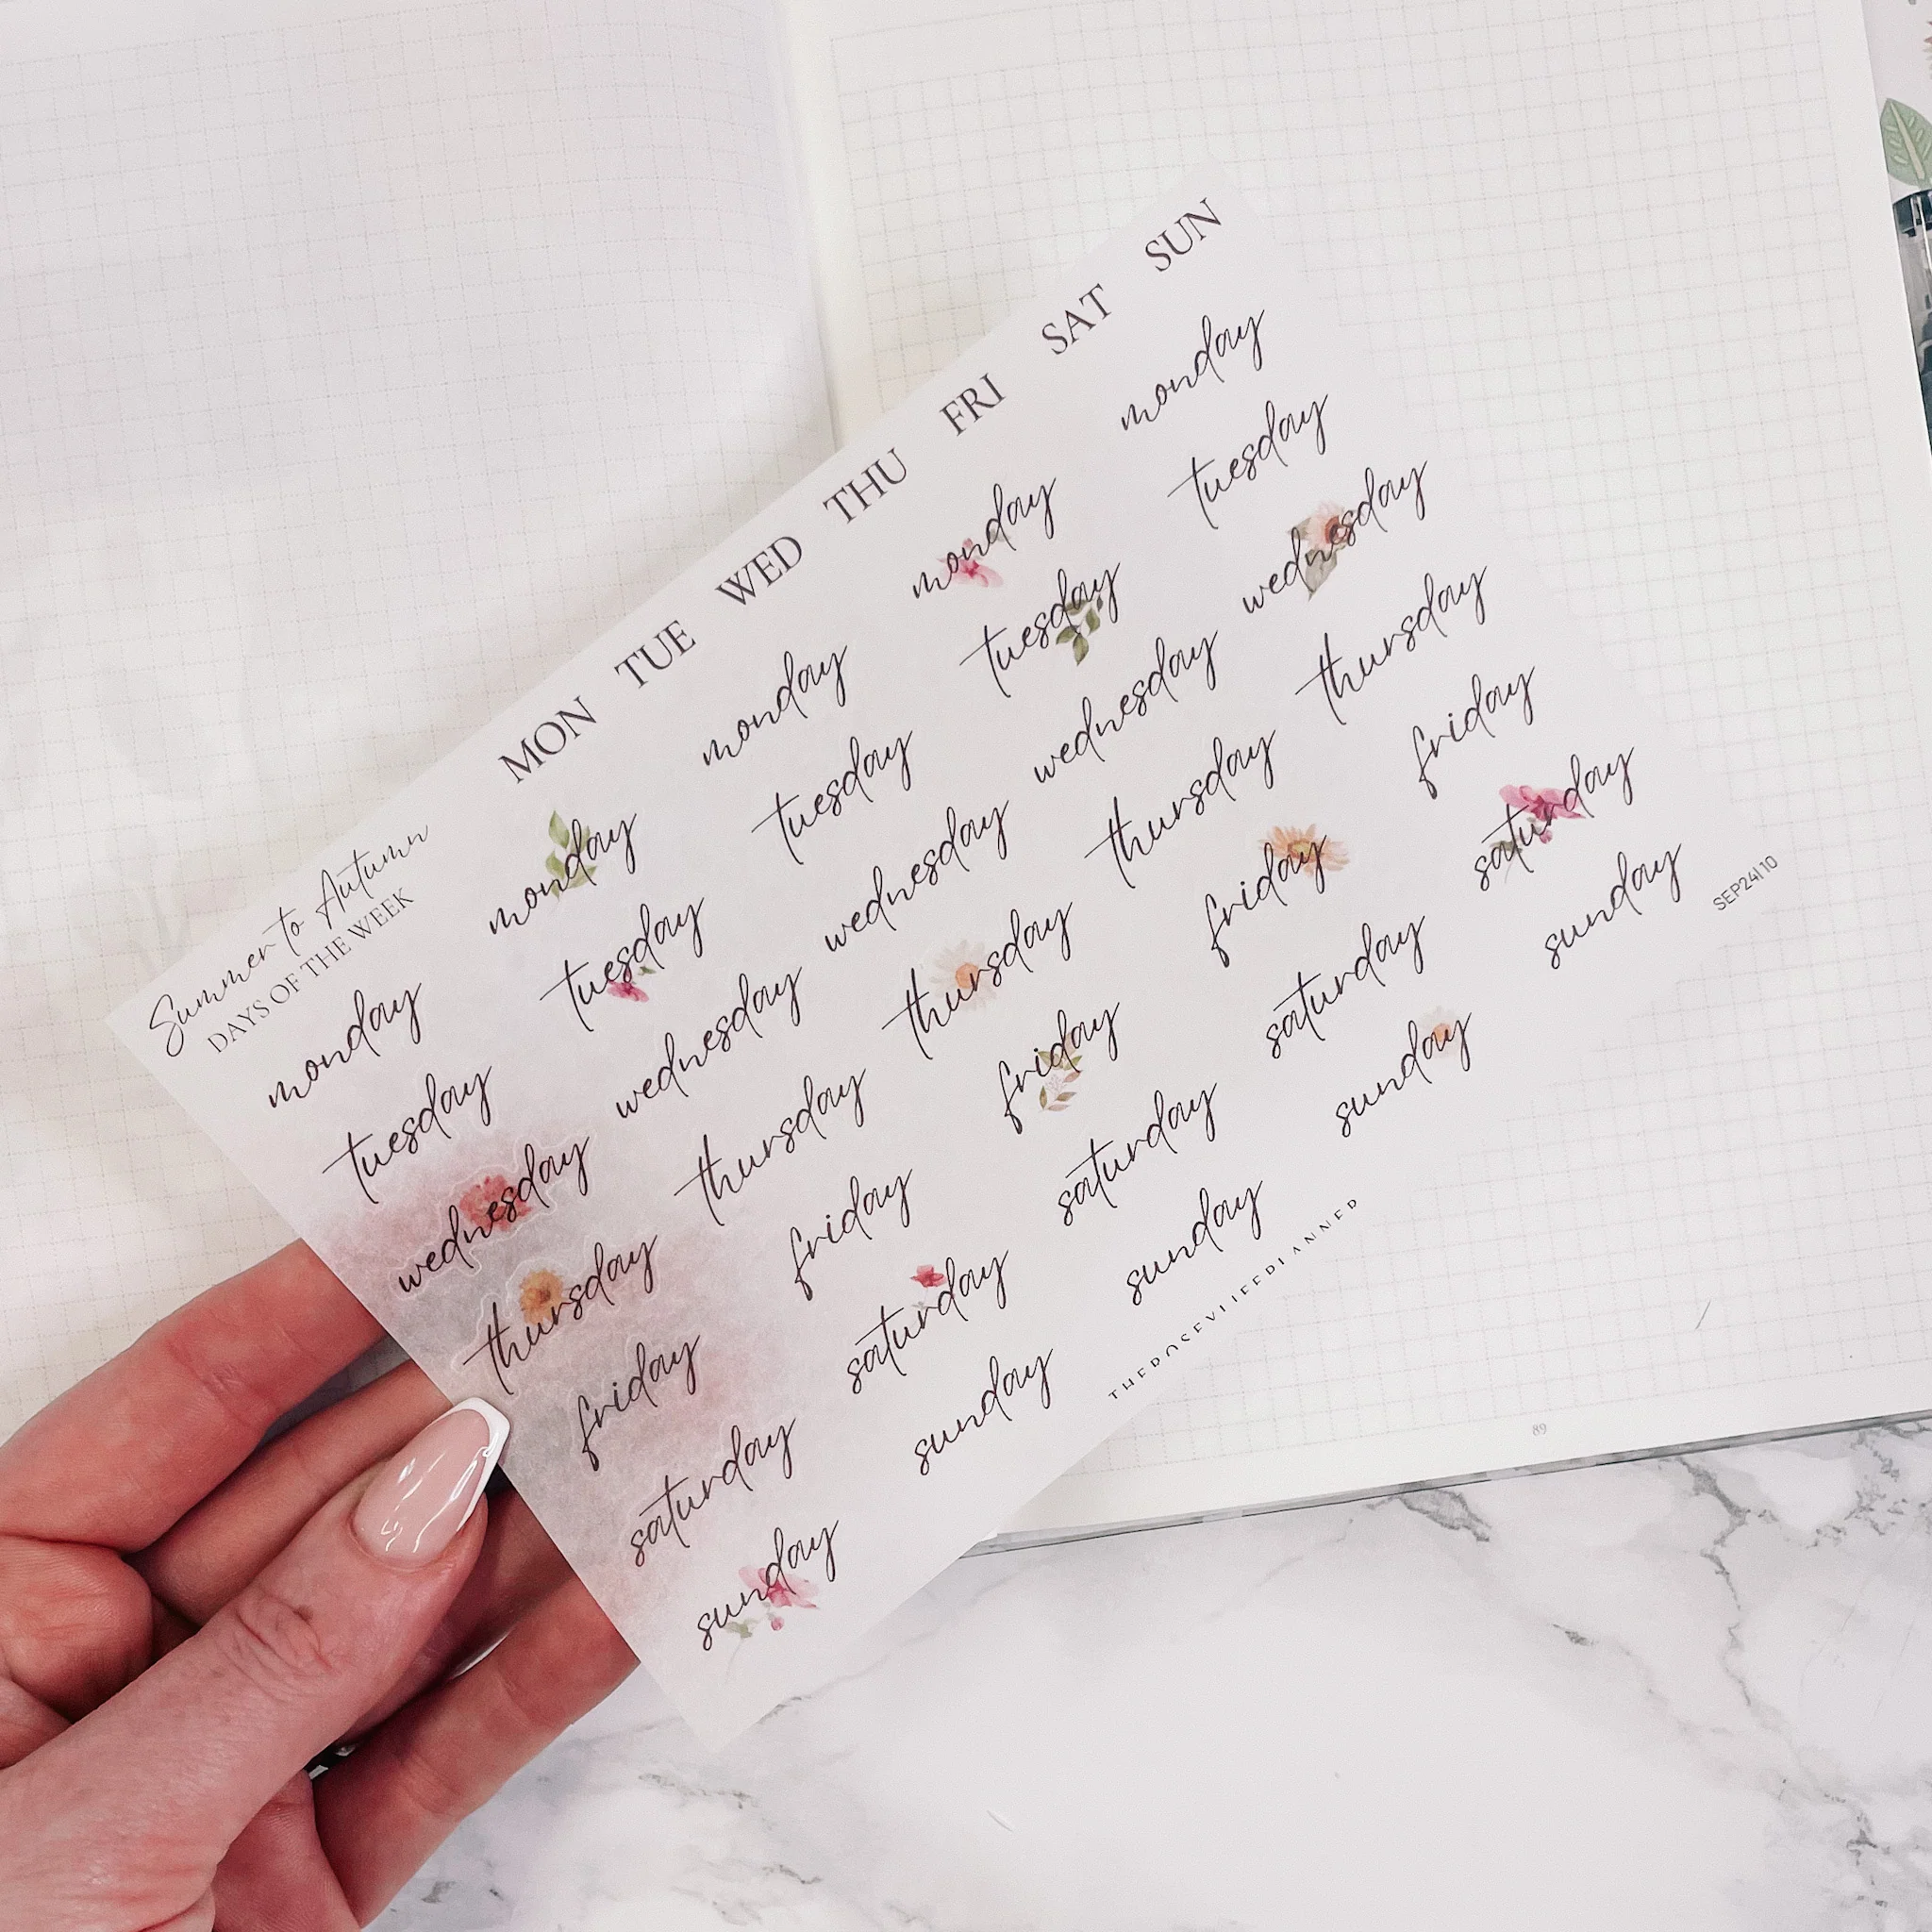 Summer to Autumn
DAYS OF THE WEEK
MON TUE WED THU FRI SAT SUN
monday monday monday monday monday
tuesday tuesday tuesday tuesday tuesday
wednesday wednesday wednesday wednesday wednesday
thursday thursday thursday thursday thursday
friday friday friday friday friday
saturday saturday saturday saturday saturday
sunday sunday sunday sunday sunday
SEP24|10
89